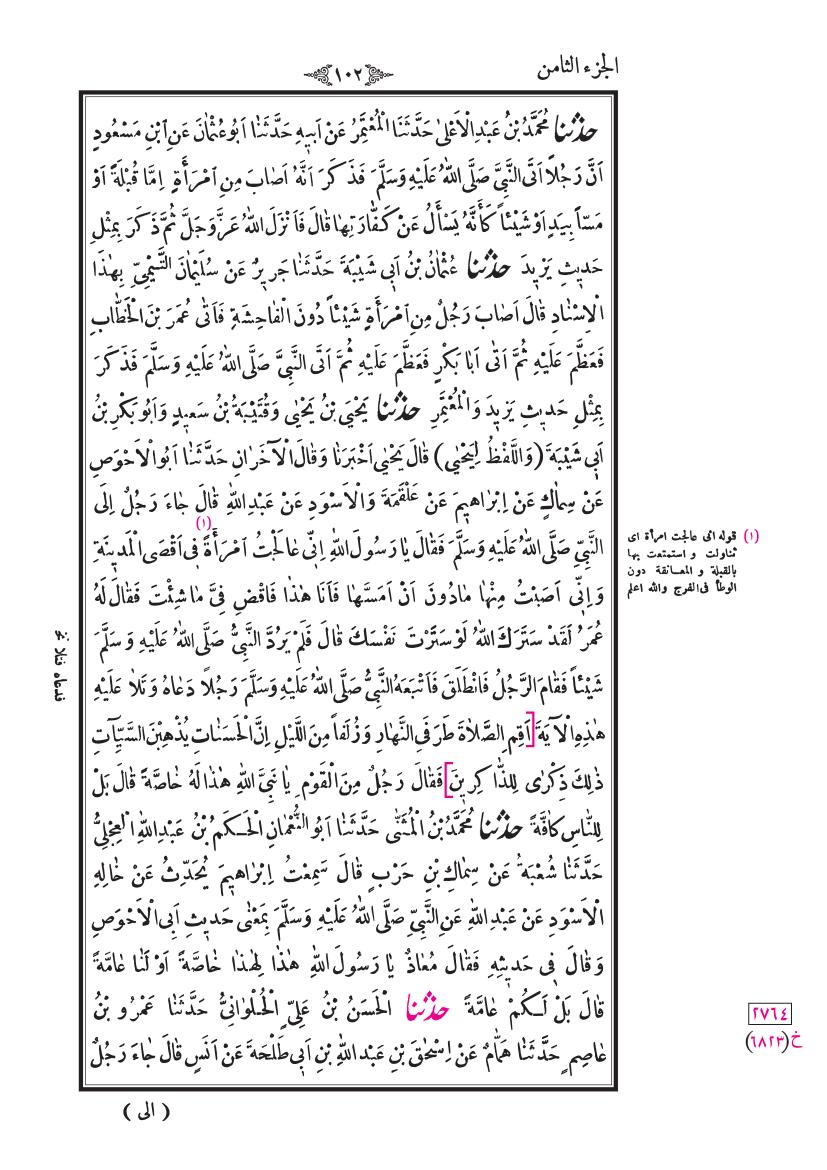 الجزء الثامن
١٠٢
حدثنا مُحَمَّدُ بْنُ عَبْدِ الْاَعْلىٰ حَدَّثَنَا الْمُعْتَمِرُ عَنْ اَبيهِ حَدَّثَنٰا اَبُو عُثْمٰانَ عَنِ ابْنِ مَسْعُودٍ
اَنَّ رَجُلاً اَتَى النَّبِيَّ صَلَّى اللهُ عَلَيْهِ وَسَلَّمَ فَذَكَرَ اَنَّهُ اَصٰابَ مِنِ امْرَأَةٍ اِمّٰا قُبْلَةً اَوْ
مَسّاً بِيَدٍ اَوْ شَيْئاً كَأَنَّهُ يَسْأَلُ عَنْ كَفّٰارَتِهٰا قٰالَ فَاَنْزَلَ اللهُ عَزَّ وَجَلَّ ثُمَّ ذَكَرَ بِمِثْلِ
حَديثِ يَزيدَ حدثنا عُثْمٰانُ بْنُ اَبي شَيْبَةَ حَدَّثَنٰا جَريرٌ عَنْ سُلَيْمٰانَ التَّيْمِيِّ بِهٰذَا
الْاِسْنٰادِ قٰالَ اَصٰابَ رَجُلٌ مِنِ امْرَأَةٍ شَيْئاً دُونَ الْفٰاحِشَةِ فَاَتٰى عُمَرَ بْنَ الْخَطّٰابِ
فَعَظَّمَ عَلَيْهِ ثُمَّ اَتٰى اَبٰا بَكْرٍ فَعَظَّمَ عَلَيْهِ ثُمَّ اَتَى النَّبِيَّ صَلَّى اللهُ عَلَيْهِ وَسَلَّمَ فَذَكَرَ
بِمِثْلِ حَديثِ يَزيدَ وَالْمُعْتَمِرِ حدثنا يَحْيَى بْنُ يَحْيٰى وَقُتَيْبَةُ بْنُ سَعيدٍ وَاَبُو بَكْرِ بْنُ
اَبي شَيْبَةَ (وَاللَّفْظُ لِيَحْيٰى) قٰالَ يَحْيٰى اَخْبَرَنٰا وَقٰالَ الْآخَرٰانِ حَدَّثَنٰا اَبُو الْاَحْوَصِ
عَنْ سِمٰاكٍ عَنْ اِبْرٰاهيمَ عَنْ عَلْقَمَةَ وَالْاَسْوَدِ عَنْ عَبْدِ اللهِ قٰالَ جٰاءَ رَجُلٌ اِلَى
النَّبِيِّ صَلَّى اللهُ عَلَيْهِ وَسَلَّمَ فَقٰالَ يٰا رَسُولَ اللهِ اِنّي عٰالَجْتُ امْرَأَةً (١) في اَقْصَى الْمَدينَةِ
وَاِنّي اَصَبْتُ مِنْهٰا مٰا دُونَ اَنْ اَمَسَّهٰا فَاَنَا هٰذٰا فَاقْضِ فِيَّ مٰا شِئْتَ فَقٰالَ لَهُ
عُمَرُ لَقَدْ سَتَرَكَ اللهُ لَوْ سَتَرْتَ نَفْسَكَ قٰالَ فَلَمْ يَرُدَّ النَّبِيُّ صَلَّى اللهُ عَلَيْهِ وَسَلَّمَ
شَيْئاً فَقٰامَ الرَّجُلُ فَانْطَلَقَ فَاَتْبَعَهُ النَّبِيُّ صَلَّى اللهُ عَلَيْهِ وَسَلَّمَ رَجُلاً دَعٰاهُ وَتَلاٰ عَلَيْهِ
هٰذِهِ الْآيَةَ [اَقِمِ الصَّلاٰةَ طَرَفَيِ النَّهٰارِ وَزُلَفاً مِنَ اللَّيْلِ اِنَّ الْحَسَنٰاتِ يُذْهِبْنَ السَّيِّآتِ
ذٰلِكَ ذِكْرٰى لِلذّٰاكِرينَ] فَقٰالَ رَجُلٌ مِنَ الْقَوْمِ يٰا نَبِيَّ اللهِ هٰذٰا لَهُ خٰاصَّةً قٰالَ بَلْ
لِلنّٰاسِ كٰافَّةً حدثنا مُحَمَّدُ بْنُ الْمُثَنّٰى حَدَّثَنٰا اَبُو النُّعْمٰانِ الْحَكَمُ بْنُ عَبْدِ اللهِ الْعِجْلِيُّ
حَدَّثَنٰا شُعْبَةُ عَنْ سِمٰاكِ بْنِ حَرْبٍ قٰالَ سَمِعْتُ اِبْرٰاهيمَ يُحَدِّثُ عَنْ خٰالِهِ
الْاَسْوَدِ عَنْ عَبْدِ اللهِ عَنِ النَّبِيِّ صَلَّى اللهُ عَلَيْهِ وَسَلَّمَ بِمَعْنٰى حَديثِ اَبِي الْاَحْوَصِ
وَقٰالَ في حَديثِهِ فَقٰالَ مُعٰاذٌ يٰا رَسُولَ اللهِ هٰذٰا لِهٰذٰا خٰاصَّةً اَوْ لَنٰا عٰامَّةً
قٰالَ بَلْ لَكُمْ عٰامَّةً حدثنا الْحَسَنُ بْنُ عَلِيٍّ الْحُلْوٰانِيُّ حَدَّثَنٰا عَمْرُو بْنُ
عٰاصِمٍ حَدَّثَنٰا هَمّٰامٌ عَنْ اِسْحٰقَ بْنِ عَبْدِ اللهِ بْنِ اَبي طَلْحَةَ عَنْ اَنَسٍ قٰالَ جٰاءَ رَجُلٌ
( الى )
(١) قوله انى عالجت امرأة اى
تناولت و استمتعت بها
بالقبلة و المعانقة دون
الوطأ فى الفرج والله اعلم
فدعاه فتلا نخ
٢٧٦٤
خ (٦٨٢٣)